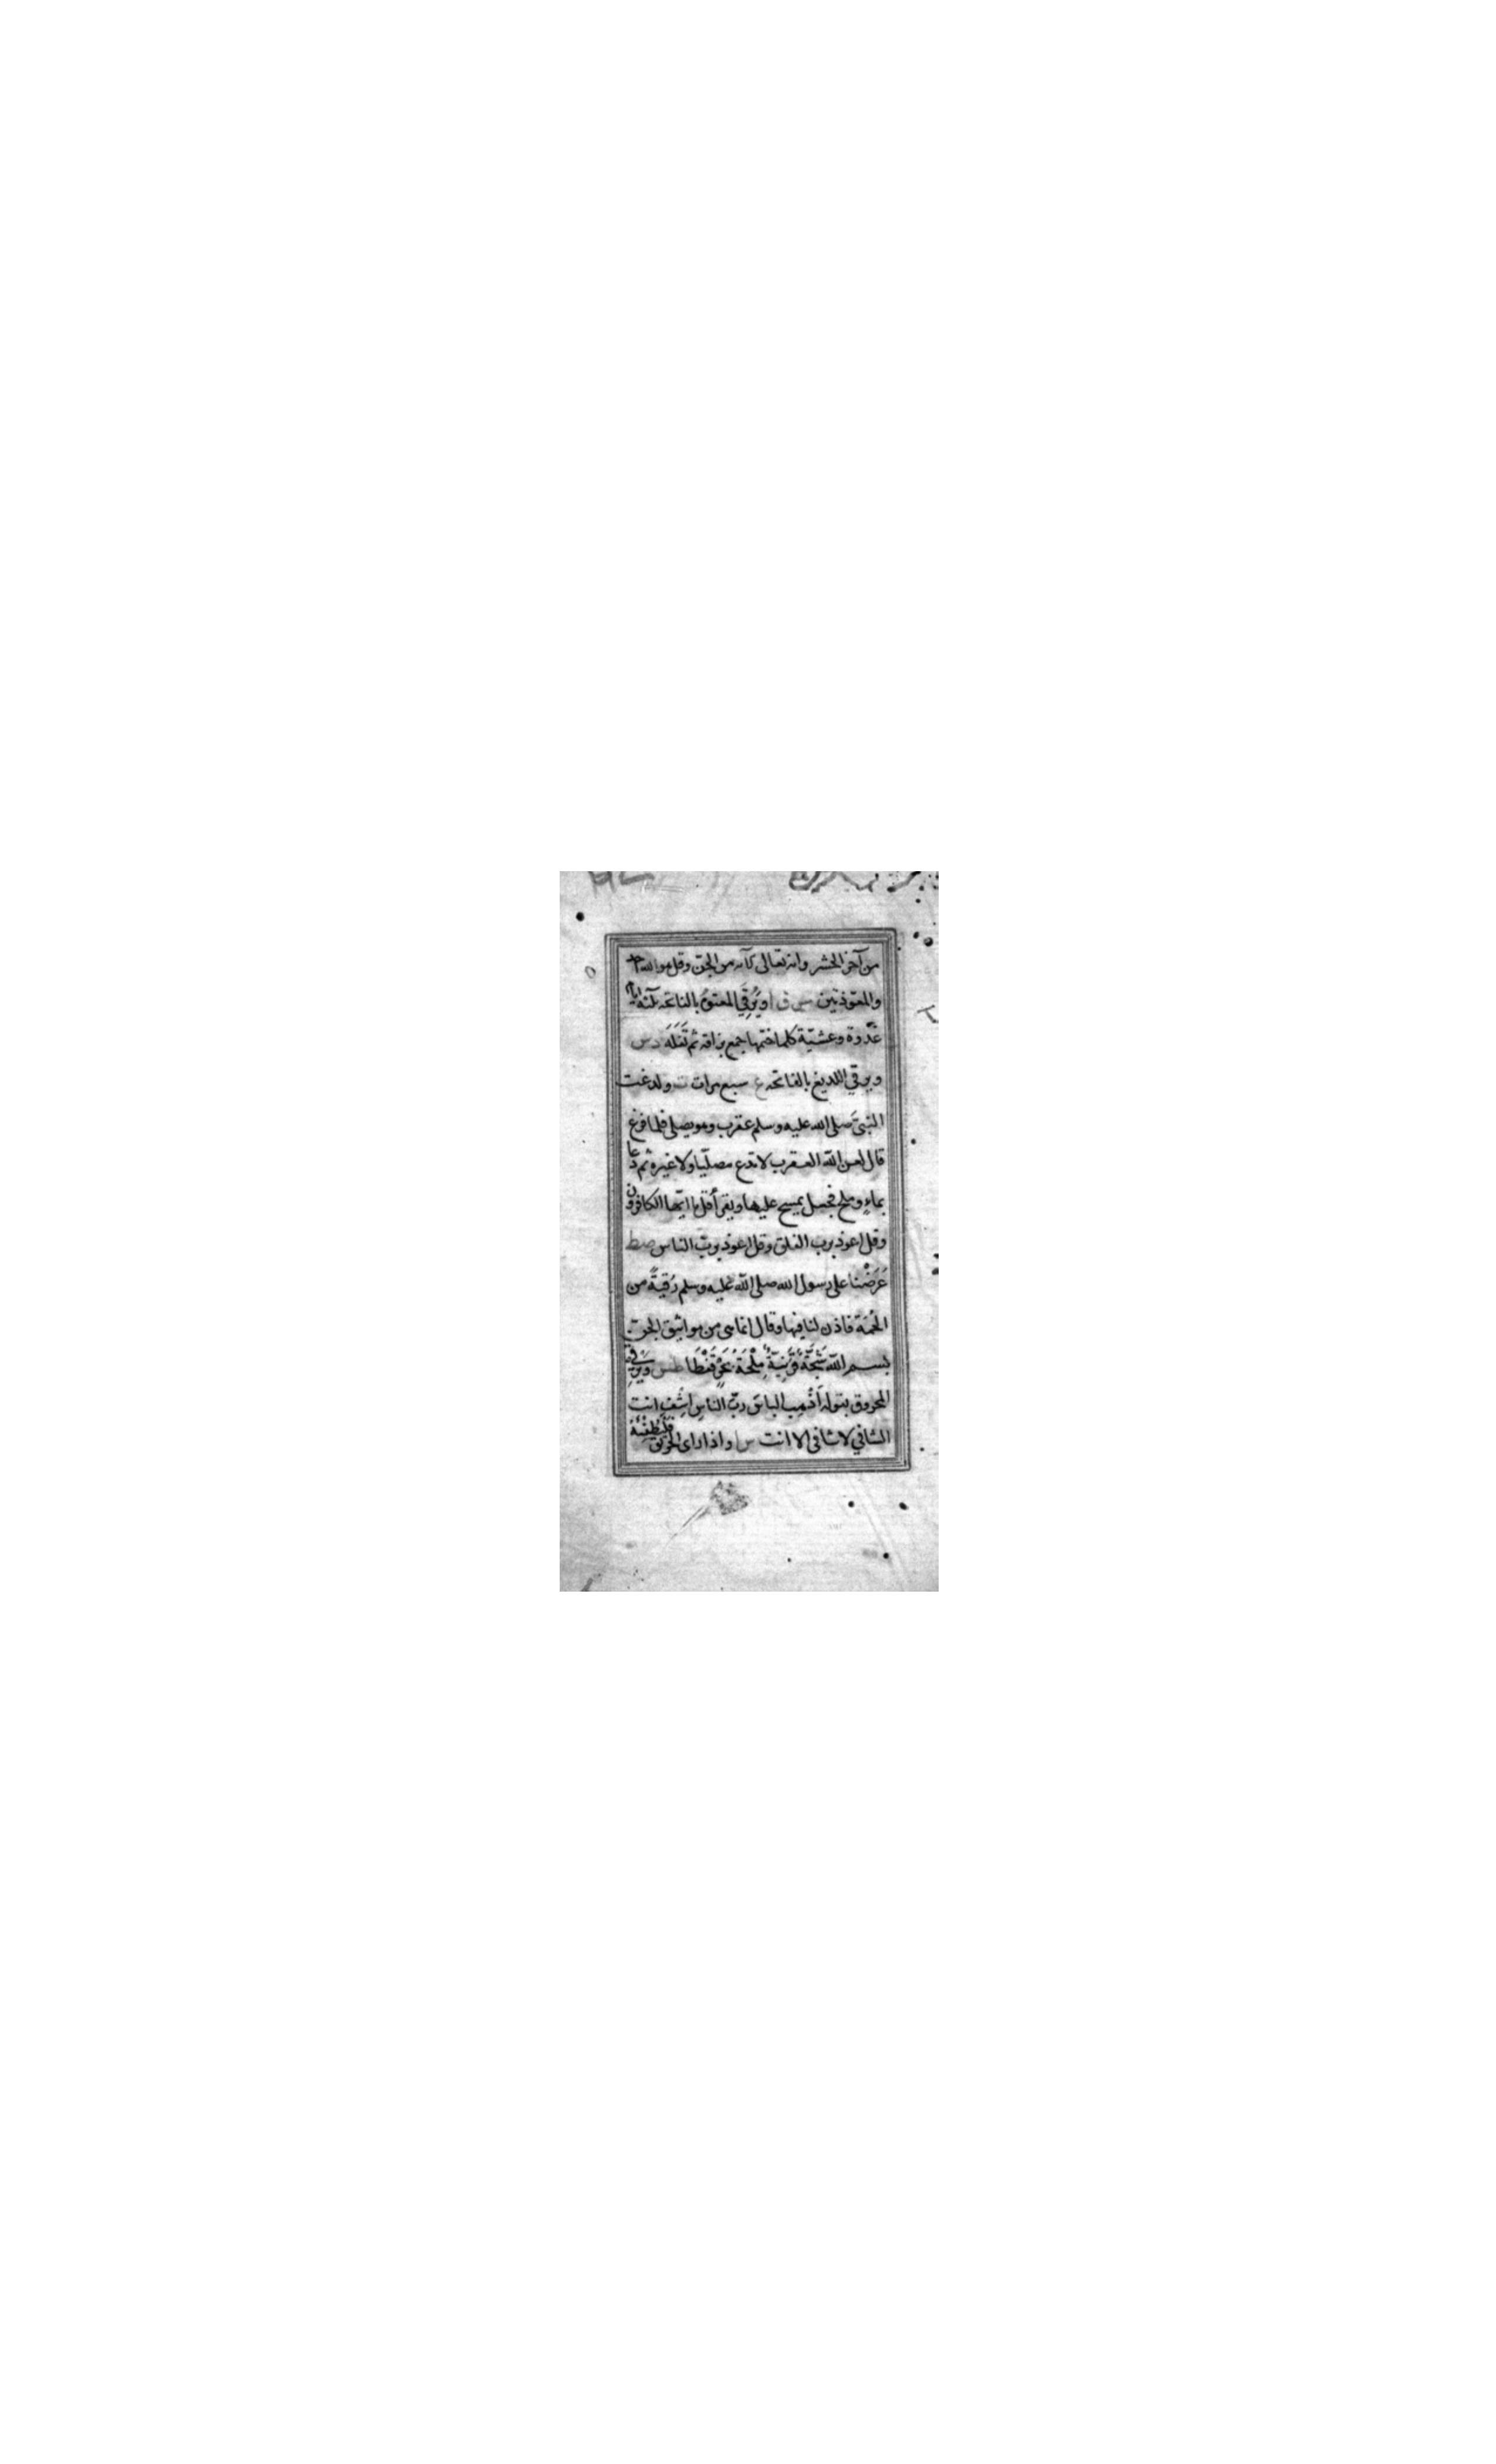 من آخر الحشر وانه تعالى الآية من الجن وقل هو الله احد
والمعوذتين مس ق ا ويُرقِي المعتوهُ بالفاتحة ثلثة ايام
غدوة وعشيّة كلما ختمها جمع بزاقه ثم تَفَلَه دس
ويرقي اللديغ بالفاتحة ع سبع مرات ت ولدغت
النبيّ صلى الله عليه وسلم عقرب وهو يصلي فلما فرغ
قال لعن الله العقرب لا تدع مصلّيا ولا غيره ثم دعا
بماءٍ وملح فجعل يمسح عليها ويقرأ قل يا ايّها الكافرون
وقل اعوذ برب الفلق وقل اعوذ بربّ الناس صط
عَرَضْنا على رسول الله صلى الله عليه وسلم رُقيةً من
الحُمَة فاذن لنا فيها وقال انما هي من مواثيق الجن
بسم الله شَجَّةٌ قَرَنِيّةٌ مِلْحَةُ بَحْرٍ قَفْطَا طس ويُرقِي
المحروق بقوله اَذهِب الباسَ ربّ الناسِ اشفِ انت
الشافي لا شافي الا انت س ا واذا راى الحريق فليُطفِئْهُ